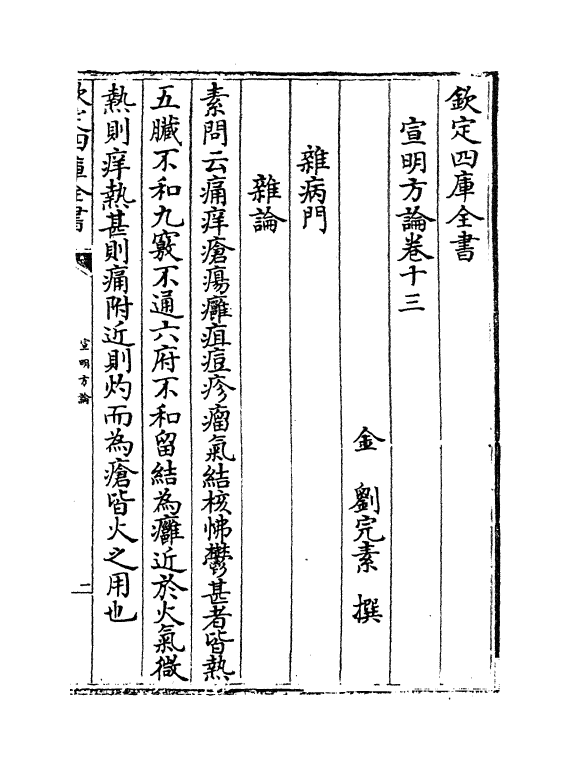 欽定四庫全書
宣明方論卷十三
金 劉完素 撰
雜病門
雜論
素問云痛痒瘡瘍癰疽痘疹瘤氣結核怫鬱甚者皆熱
五臟不和九竅不通六府不和留結為癰近於火氣微
熱則痒熱甚則痛附近則灼而為瘡皆火之用也
欽定四庫全書
宣明方論
二